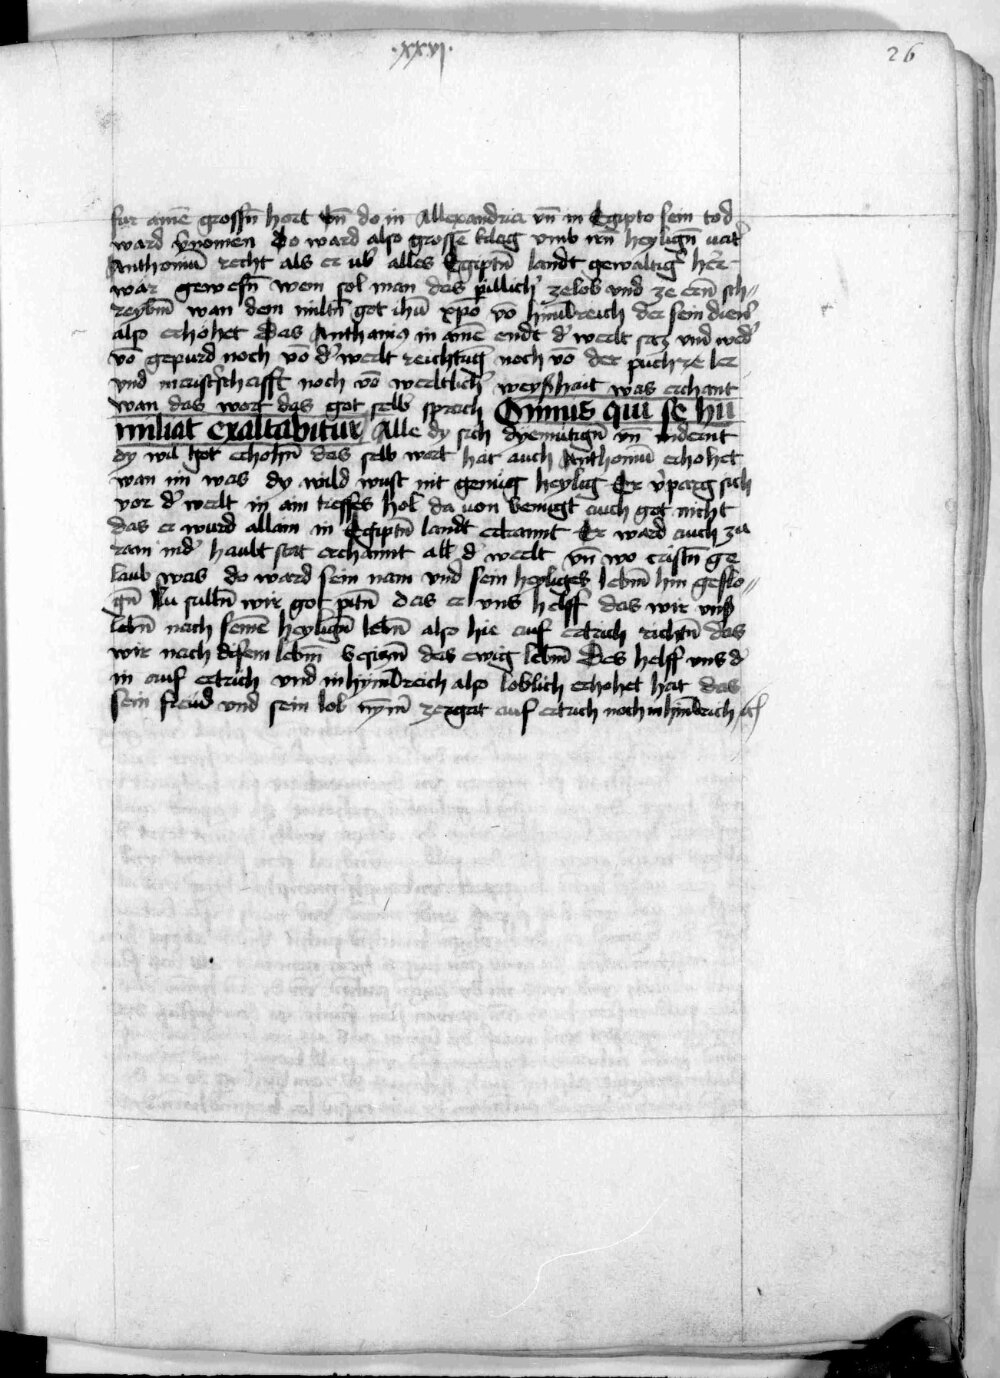 ·xxvj·
26
fur ainē grossn̄ hort Vn̄ do in Allexandria vn̄ in Egipto sein tod
ward v̾nomen Do ward also grosse klag vmb irn̄ heylign̄ vat̾
Anthoniū recht als er vb̾ alles Egiptn̄ landt gewaltig̾ her
wär gewesn̄ wem sol man das pillich̾ zelob vnd ze ern̄ sch〃
reybm̄ wan dem miltn̄ got ihū xpō vō himelreich der sein dien̾
also erhöhet Das Anthoniꝯ in ainē endt d̾ werlt saz vnd wed̾
vō gepurd noch vō d̾ werlt reichtūg noch vō der puch ze ler
vnd maist̾scheafft noch vō werltlich̾ weyßhait was erchant
wan das wort das got selb̾ sprach Omnis qui se hu
miliat exaltabitur Alle dy sich dyemutign̄ vn̄ nidernt
dy wil got erhohn̄ das selb wort hat auch Anthoniū erhohet
wan im was dy wild wust nit genüg heylig Er v̾parg sich
vor d̾ werlt in ain tieffes hol da von benugt auch got nicht
das er wurd allain in Egiptn̄ landt erkannt Er ward auch zu
ram in d̾ haubt stat erchannt all d̾ werlt vn̄ wo cristn̄ ge
laub was do ward sein nam vnd sein heyliges lebm̄ hin geflo〃
gn̄ Nu sulln̄ wir got pitn̄ das er vns helff das wir vns̾
lebn̄ nach seinē heyligm̄ lebn̄ also hie auf ertrich richtn̄ das
wir nach disem lebm̄ besiczn̄ das ewig lebm̄ Des helff vns d̾
in auf ertrich vnd in hymelreich also loblich erhohet hat das
sein freüd vnd sein lob nym̄ zergat auf ertrich noch in himelreich